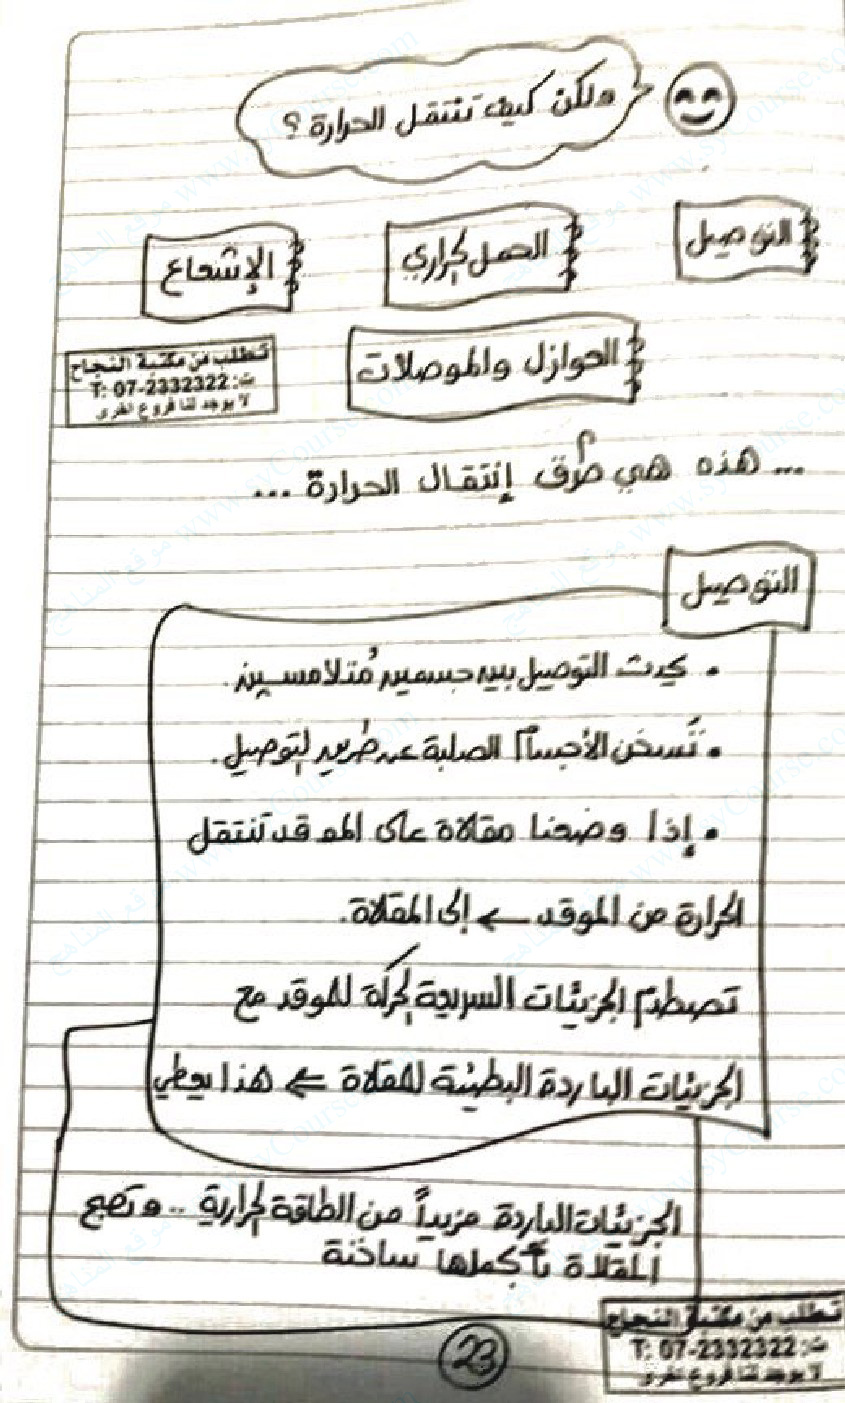 ولكن كيف تنتقل الحرارة ؟
التوصيل
الحمل الحراري
الإشعاع
العوازل والموصلات
تطلب من مكتبة النجاح
ت: T: 07-2332322
لا يوجد لنا فروع اخرى
... هذه هي طُرق إنتقال الحرارة ...
التوصيل
• يحدث التوصيل بين جسمين مُتلامسين.
• تَسخن الأجسام الصلبة عن طريق التوصيل.
• إذا وضعنا مقلاة على الموقد تنتقل
الحرارة من الموقد ← إلى المقلاة.
تصطدم الجزيئات السريعة الحركة للموقد مع
الجزيئات الباردة البطيئة للمقلاة ⇐ هذا يعطي
الجزيئات الباردة مزيداً من الطاقة الحرارية .. وتصبح
المقلاة بأكملها ساخنة
23
تطلب من مكتبة النجاح
ت: T: 07-2332322
لا يوجد لنا فروع اخرى
موقع المناهج www.syCourse.com